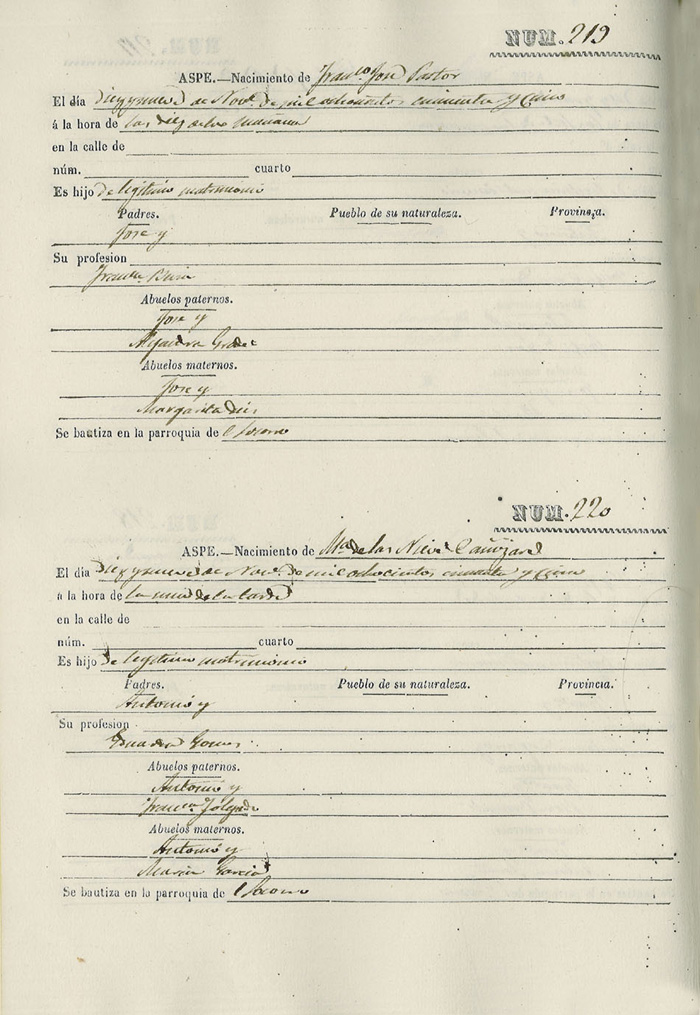 NUM. 219
ASPE.—Nacimiento de Franco José Pastor
El día diez y nueve de Nove. de mil ochocientos cincuenta y cinco
á la hora de las diez de la mañana
en la calle de
núm. cuarto
Es hijo de legitimo matrimonio
Padres. Pueblo de su naturaleza. Provincia.
Jose y
Su profesion
Franca.
Abuelos paternos.
Jose y
Alejandra
Abuelos maternos.
Jose y
Margarita
Se bautiza en la parroquia de l Socorro
NUM. 220
ASPE.—Nacimiento de Ma. de las Nieves Cañizares
El día diez y nueve de Nove. de mil ochocientos cincuenta y cinco
á la hora de la una de la tarde
en la calle de
núm. cuarto
Es hijo de legitimo matrimonio
Padres. Pueblo de su naturaleza. Provincia.
Antonio y
Su profesion
Abuelos paternos.
Antonio y
Franca.
Abuelos maternos.
Antonio y
Maria Garcia
Se bautiza en la parroquia de l Socorro